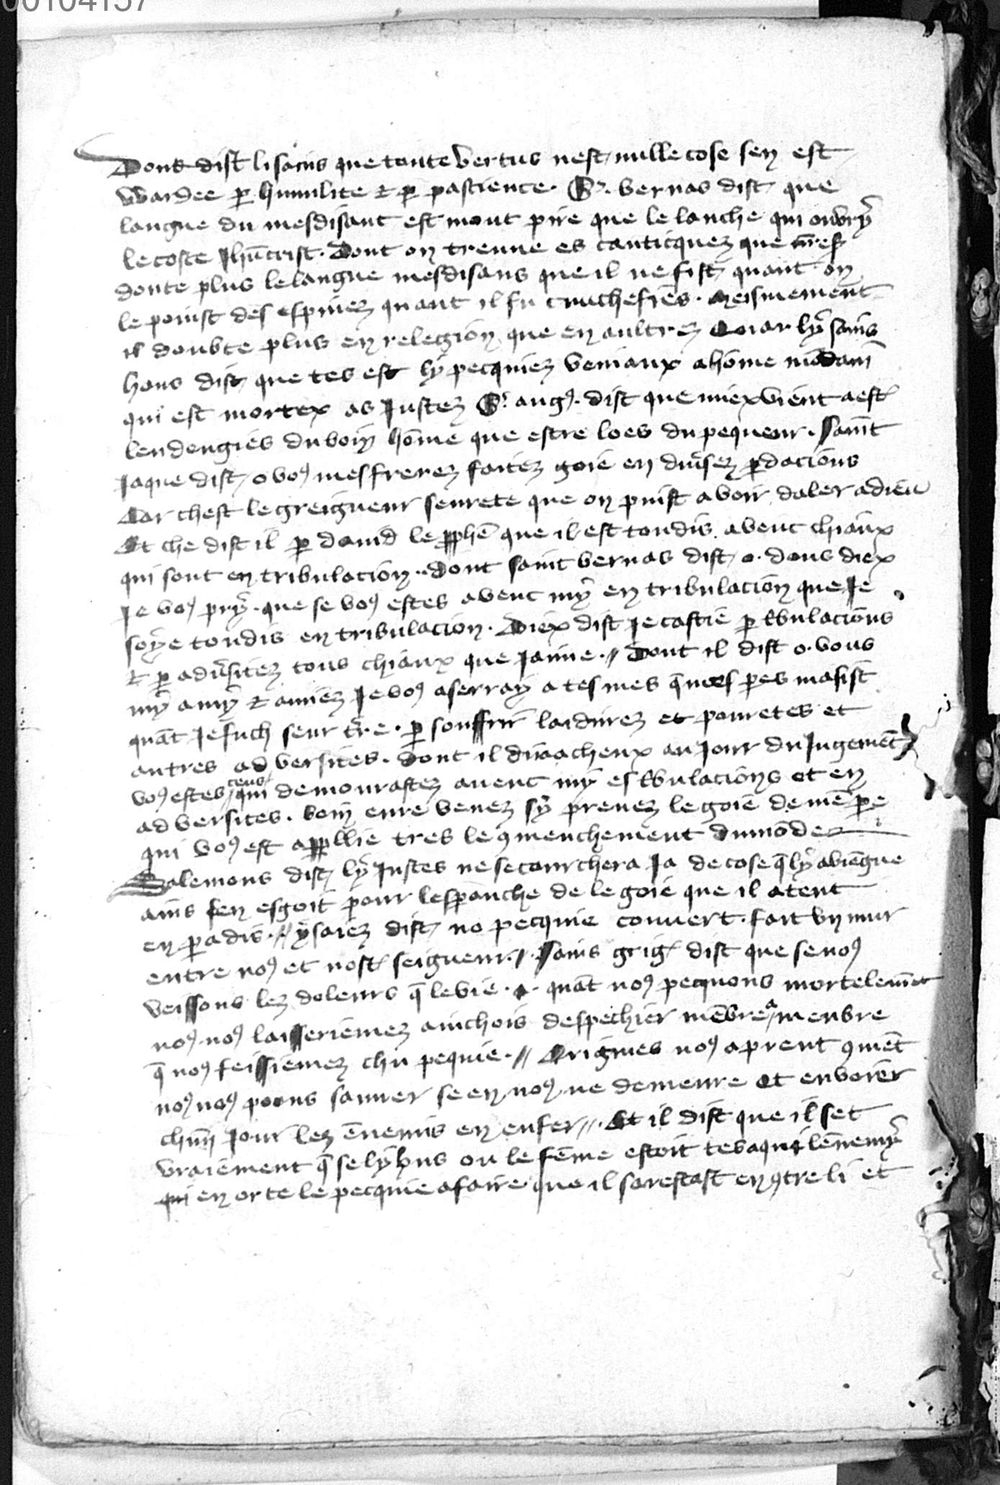 00104137
Dont dist li sains que toute vertus nest nulle cose sen est
wardee ꝑ humilite ⁊ ꝑ pascience . Sᵗ. bernas dist que
langue du mesdisant est mout pire que le lanche qui ouvry̾
le coste Jhūcrist . Dont on treuue es canticquez que
doute plus le langue mesdisans que il ne fist quant on
le poinst des espinez quant il fu cruchefiēs . meismement
il doubte plus en relegion que en aultrez Quar ly sains
hons dist que tes est ly pecquiez veniaux a hōme mōdain
qui est mortex as Justez Sᵗ augꝰ . dist que miex vient aestꝰ
lendengies du boin hōme que estre loes du pequeur . Saint
Jaque dist o voꝰ mes frerez faitez goie en diūsez ꝑdacions
Car chest le greigneur seurete que on puist avoir daler a dieu
Et che dist il ꝑ david le ꝓphē que il est toudis avenc chiaux
qui sont en tribulacion . Dont saint bernas dist o . dous diex
Je voꝰ pry . que se voꝰ estes avenc my en tribulacion que Je
soye toudis en tribulacion . Diex dist Je castie ꝑ tbulacions
⁊ ꝑ adūsitez tous chiaux que Jaime . // Dont il dist o . vous
my amy ⁊ amiez Je voꝰ aserray a tes mes q̄ mes peres masist
quāt Je fuch seur tr̄re . ꝑ souffrir laidurez et pouretes et
autres adversites . dont il dira acheux au Jour du Jugemēt
voꝰ estes ceus qui demourastez avenc my es tbulacions et en
adversites . boin eure venez sy prenez le goie de mē pe
qui voꝰ est apꝑllie tres le ꝯmenchement du mōde
Salemons dist ly Justes ne se courchera Ja de cose q̄ ly aviēgne
ains sen esgoit pour lesꝑanche de le goie que il atent
en ꝑadis . // ysaiez dist no pecquie couvert . fait vn mur
entre noꝰ et nostꝰ seigneur . // Sains grigꝰ dist que se noꝰ
veissons lez doleurs q̄ le vie . quāt noꝰ pecquons mortelemēt
noꝰ noꝰ laisseriemez ainchois despechier mēbre a menbre
q̄ noꝰ feissiemez chu pequie . // Origines noꝰ aprent ꝯmēt
noꝰ noꝰ poons sauver se en noꝰ ne demeure et envoier
chūn Jour lez ēnemis en enfer // . Et il dist que il set
vraiement q̄ se ly hons ou le fēme estoit le ēnemy
qui en orte le pecquie a faire que il sarestast enꝯtre li et